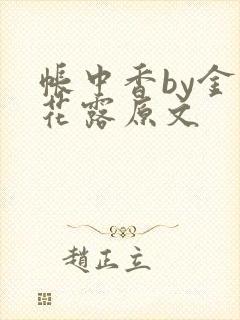 帳中香by金
花露原文
趙正立